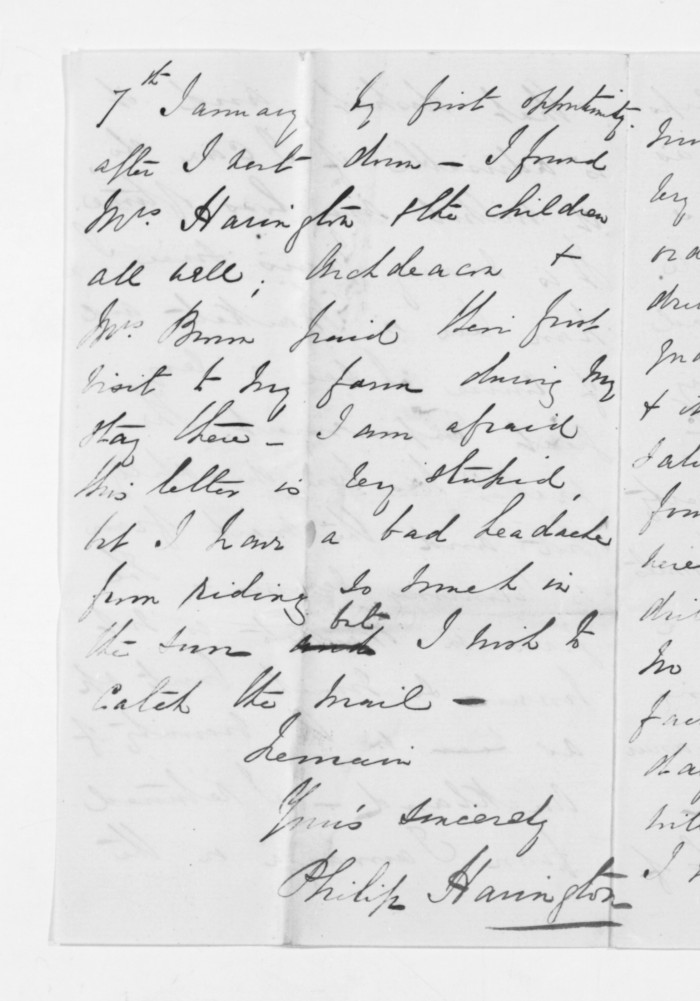 7th January by first opportunity.
after I went down — I found
Mrs. Harington & the children
all well; Archdeacon &
Mrs. Brown paid their first
visit to my farm during my
stay there — I am afraid
this letter is very stupid,
but I have a bad headache
from riding so much in
the sun and but I wish to
catch the mail —
Remain
Yours sincerely
Philip Harington
by
&
here
no
I